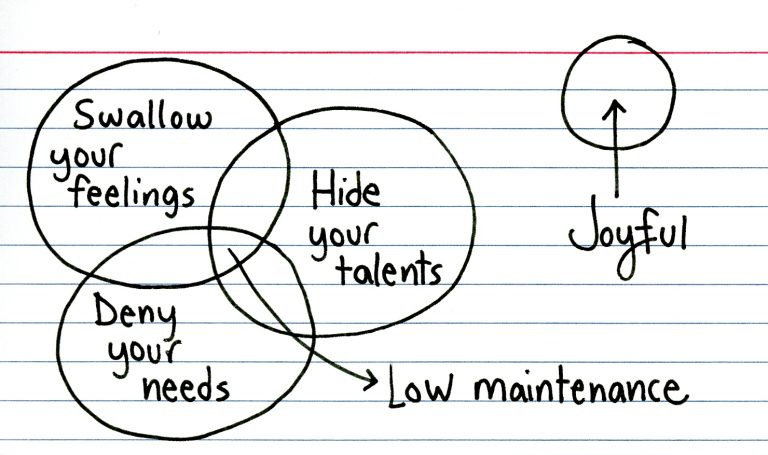 Swallow
your
feelings
Hide
your
talents
Deny
your
needs
Low maintenance
Joyful